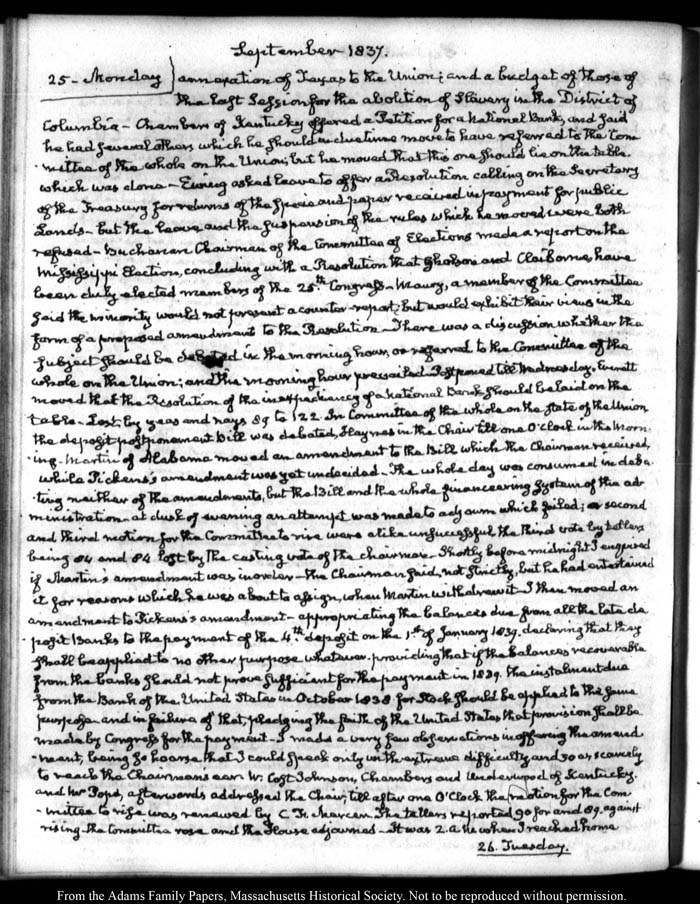 September 1837.
25 - Monday } annexation of Texas to the Union; and a budget of those of
the last Session for the abolition of Slavery in the District of
Columbia - Chambers of Kentucky offered a Petition for a National Bank, and said
he had several others which he should in due time move to have referred to the Com-
mittee of the whole on the Union, but he moved that this one should lie on the table.
which was done - Ewing asked leave to offer a Resolution calling on the Secretary
of the Treasury for returns of the specie and paper received in payment for public
Lands - but the leave and the suspension of the rules which he moved were both
refused - Buchanan Chairman of the Committee of Elections made a report on the
Mississippi Election, concluding with a Resolution that Gholson and Claiborne, have
been duly elected members of the 25th Congress - Maury, a member of the Committee
said the minority would not present a counter-report, but would exhibit their views in the
form of a proposed amendment to the Resolution - There was a discussion whether the
subject should be debated in the morning hour, or referred to the Committee of the
whole on the Union; and the morning hour prevailed. Postponed till Wednesday. Everett
moved that the Resolution of the inexpediency of a National Bank should be laid on the
table - Lost, by yeas and nays 89 to 122. In Committee of the whole on the state of the Union
the deposit postponement Bill was debated, Haynes in the Chair till one O'Clock in the Morn-
ing. Martin of Alabama moved an amendment to the Bill which the Chairman received,
while Pickens's amendment was yet undecided - The whole day was consumed in deba-
ting neither of the amendments, but the Bill and the whole financeering System of the ad-
ministration - at dusk of evening an attempt was made to adjourn which failed; a second
and third motion for the Committee to rise were alike unsuccessful the third vote by tellers
being 84 and 84 lost by the casting vote of the chairman - Shortly before midnight I enquired
if Martin's amendment was in order - the Chairman said, not strictly, but he had entertained
it for reasons which he was about to assign, when Martin withdrew it - I then moved an
amendment to Pickens's amendment - appropriating the balances due from all the late de-
posit Banks to the payment of the 4th deposit on the 1st of January 1839. declaring that they
shall be applied to no other purpose whatever. providing that if the balances recoverable
from the banks should not prove sufficient for the payment in 1839. the instalment due
from the Bank of the United States in October 1838 for Stock should be applied to the same
purpose - and in failure of that, pledging the faith of the United States that provision shall be
made by Congress for the payment - I made a very few observations in offering the amend-
ment, being so hoarse that I could speak only with extreme difficulty and so as scarcely
to reach the Chairman's ear. W. Cost Johnson, Chambers and Underwood of Kentucky.
and Mr Pope, afterwards addressed the Chair, till after one O'Clock the motion for the Com-
mittee to rise was renewed by The tellers reported 90 for and 89. against
rising - the Committee rose and the House adjourned - It was 2. a.m. when I reached home
26. Tuesday.
From the Adams Family Papers, Massachusetts Historical Society. Not to be reproduced without permission.